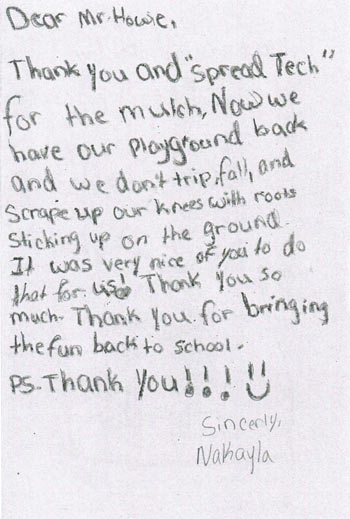 Dear Mr. Howie,
Thank you and "Spread Tech"
for the mulch, Now we
have our playground back
and we don't trip, fall, and
Scrape up our knees with roots
Sticking up on the ground.
It was very nice of you to do
that for us! Thank you so
much. Thank you for bringing
the fun back to school.
PS. Thank you!!!
Sincerly,
Nakayla